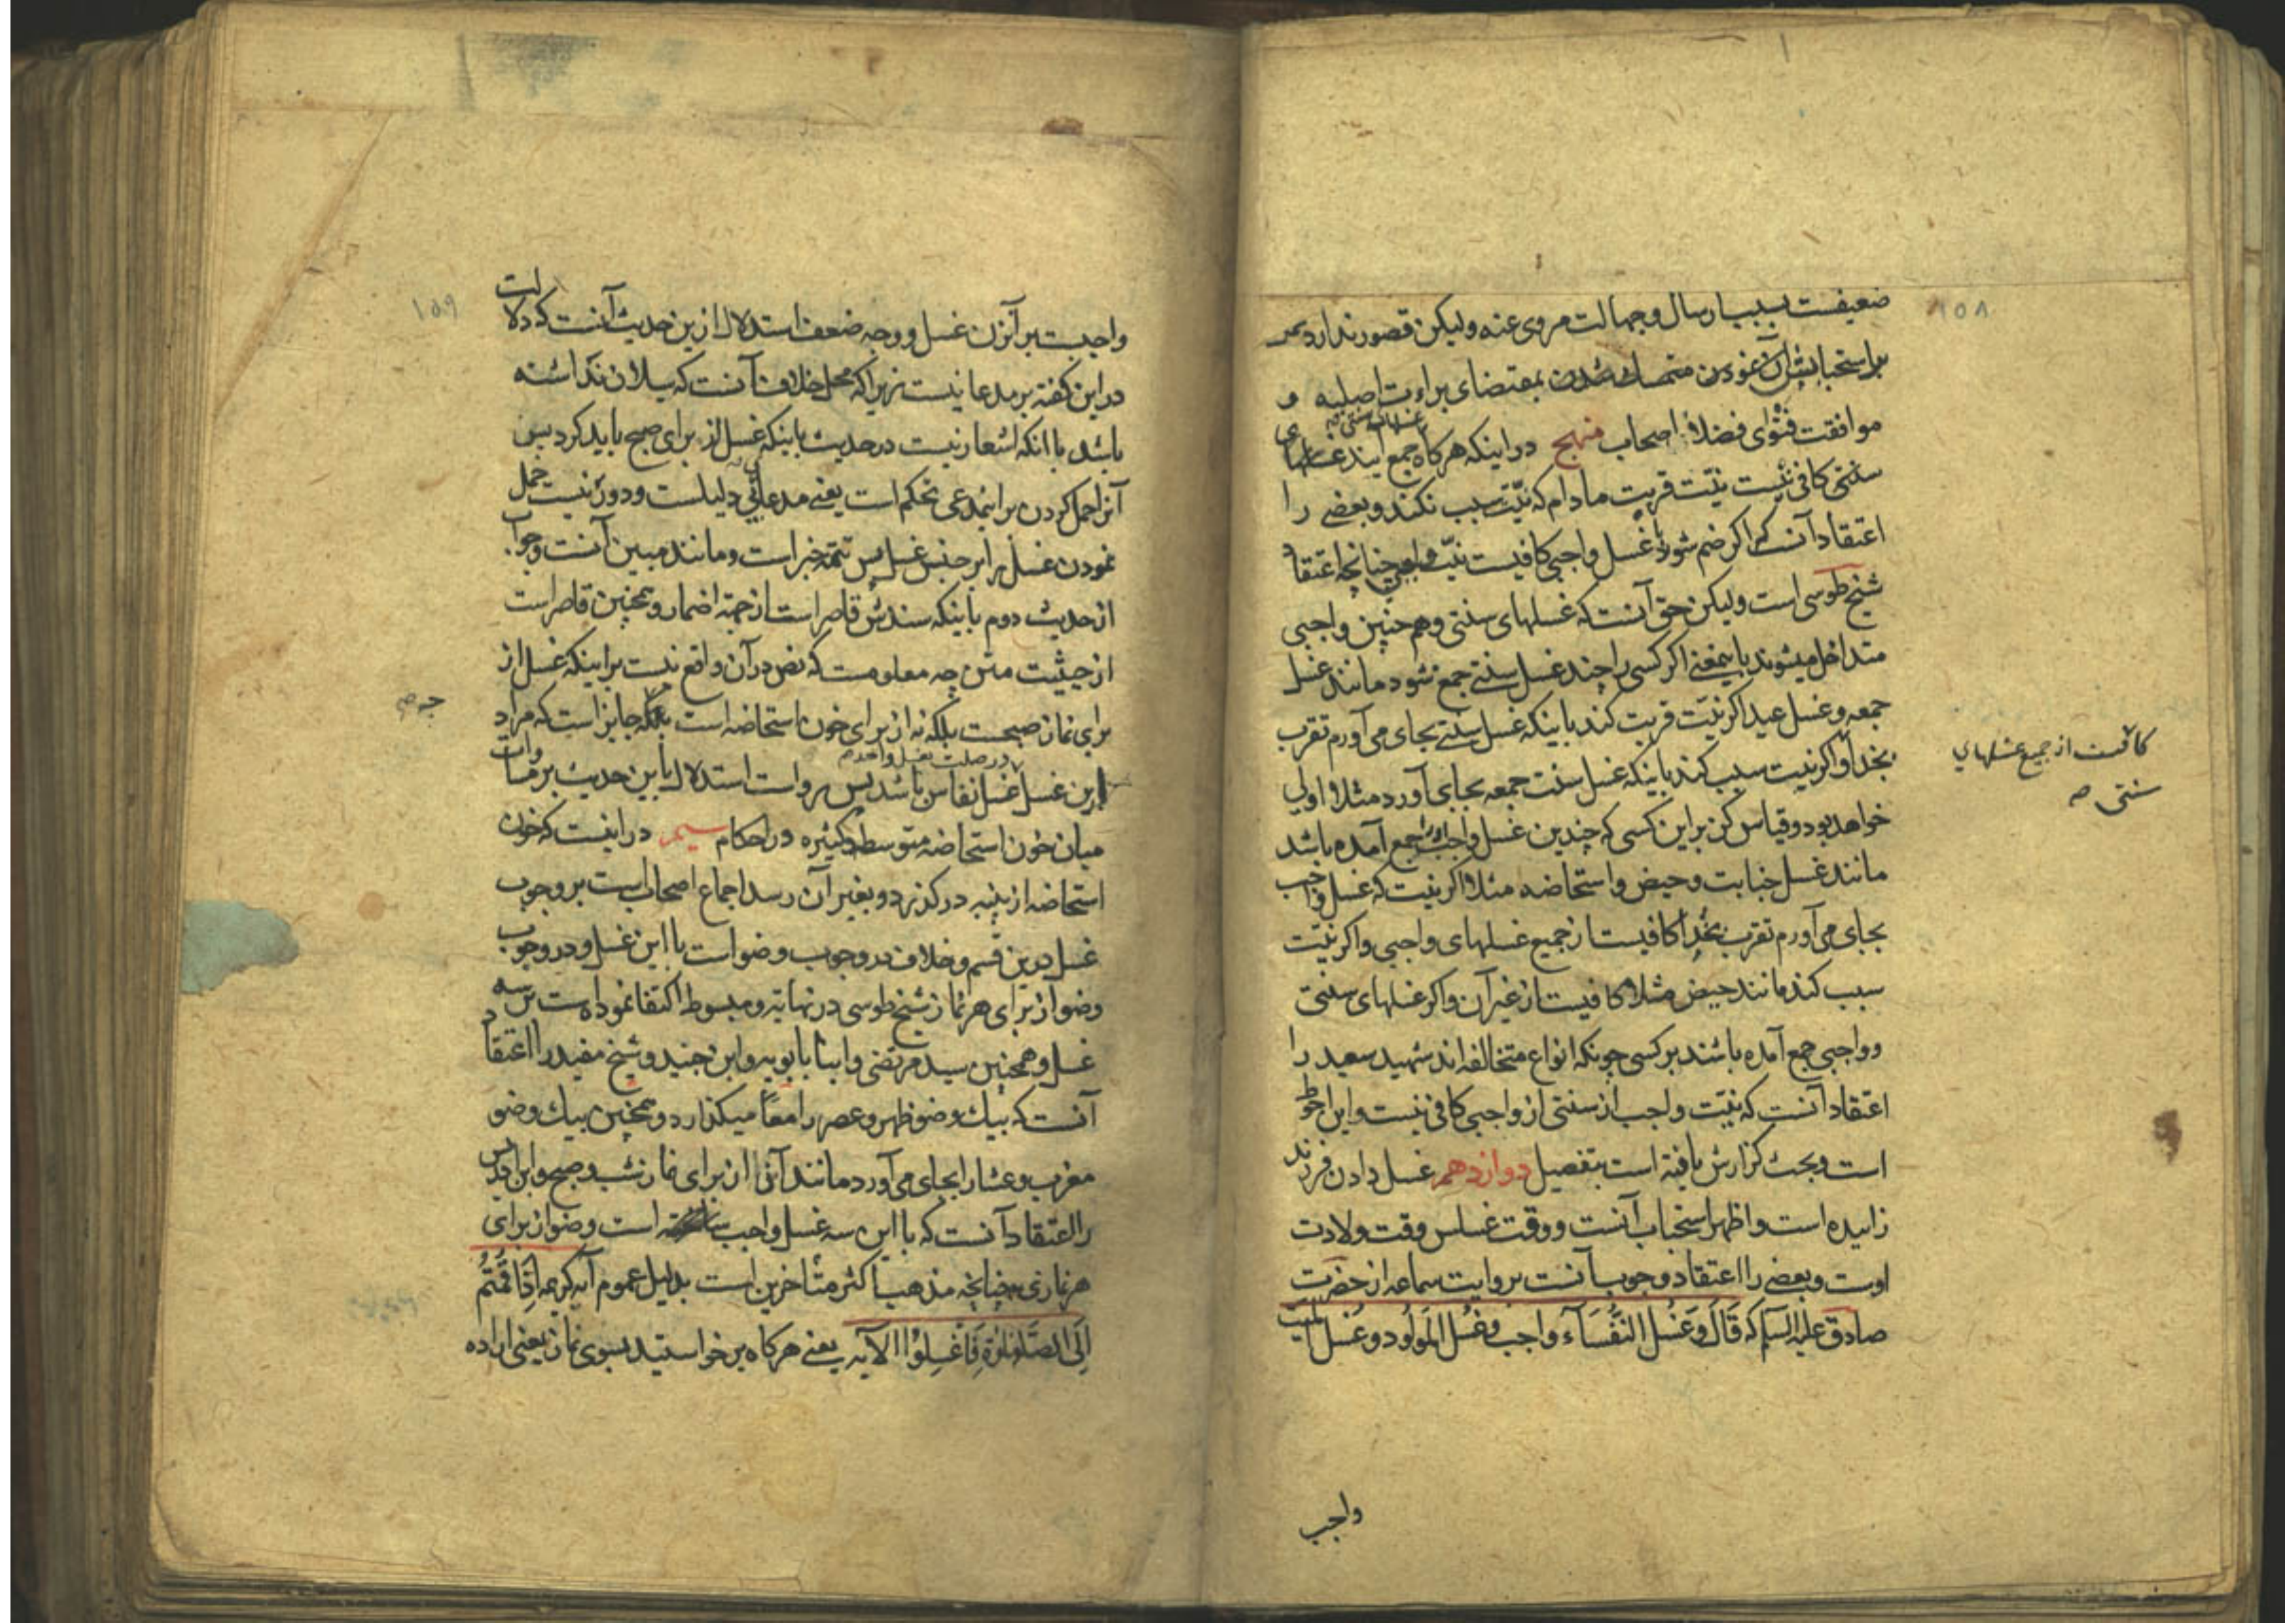 ۱۵۸
ضعیفست بسبب ارسال و جهالت مروی عنه ولیکن قصور ندارد
بر استحبابش نمودن بمقتضای براءت اصلیه و
موافقت فتوای فضلا اصحاب منهج در اینکه هرکاه جمع آیند غسلهای
سنتی کافی نیست نیّت قربت مادام که نیّت سبب نکند و بعضی را
اعتقاد آنست که اکر ضم شود با غسل واجبی کافیست نیّت واجبی چنانچه اعتقاد
شیخ طوسی است ولیکن حق آنست که غسلهای سنتی و هم چنین واجبی
متداخل میشوند باینمعنی اکر کسی را چند غسل سنتی جمع شود مانند غسل
جمعه و غسل عید اکر نیّت قربت کند باینکه غسل سنتی بجای می آورم تقرب
بخدا و اکر نیت سبب کند باینکه غسل سنت جمعه بجای آورد مثلا اولی
کافیست از جمیع غسلهای
سنتی صه
خواهد بود و قیاس کن براین کسی که چندین غسل واجب جمع آمده باشد
مانند غسل جنابت و حیض و استحاضه مثلا اکر نیت که غسل واجب
بجای می آورم تقرب بخدا کافیست از جمیع غسلهای واجبی و اکر نیّت
سبب کند مانند حیض مثلا کافیست از غیر آن و اکر غسلهای سنتی
و واجبی جمع آمده باشند بر کسی چونکه انواع متخالفه اند شهید سعید را
اعتقاد آنست که نیّت واجب از سنتی از واجبی کافی نیست و این احوط
است و بحث کزارش یافته است بتفصیل دوازدهم غسل دادن فرزند
زاییده است و اظهر استحباب آنست و وقت غسلس وقت ولادت
اوست و بعضی را اعتقاد وجوب آنست بروایت سماعه از حضرت
صادق علیه السلم که قَالَ وَغُسْل النفَسَآء واجب وغُسْل المَولود وغُسْل المیّت
واجب
۱۵۹
واجبست بر آنزن غسل و وجه ضعف استدلال ازین حدیث آنست که دلالت
در این کفته بر مدعا نیست زیرا که محل خلاف آنست که سیلان نداشته
باشد با انکه اشعار نیست در حدیث باینکه غسل از برای صبح باید کرد پس
آنرا حمل کردن بر اینمدعی تحکم است یعنی مدعای بی دلیلست و دور نیست حمل
نمودن غسل را بر جنس غسل پس تتمه خبر است و مانند مبین آنست وجواب
از حدیث دوم باینکه سندش قاصر است از جهة اضمار و همچنین قاصر است
از حیثیت متن چه معلومست که نص در آن واقع نیست بر اینکه غسل از
برای نماز صبحست بلکه نه از برای خون استحاضه است بلکه جایز است که مراد
ازین غسل غسل نفاس باشد پس رواست استدلال باین حدیث بر مساوات
میان خون استحاضه متوسطه و کثیره در احکام سیم در اینست که خون
استحاضه از پنبه در کذرد و بغیر آن رسد اجماع اصحاب است بر وجوب
غسل درین قسم و خلاف در وجوب وضو است با این غسل و در وجوب
وضو از برای هر نماز شیخ طوسی در نهایه و مبسوط اکتفا نموده است بر سه
غسل و همچنین سید مرتضی و ابنا بابویه و ابن جنید و شیخ مفید را اعتقاد
آنست که بیك وضو ظهر و عصر را معًا میکذارد و همچنین بیك وضو
مغرب و عشا را بجای می آورد مانند آنرا از برای نماز شب و صبح و ابن ادریس
را اعتقاد آنست که با این سه غسل واجب است وضو از برای
هر نمازی چنانچه مذهب اکثر متاخرین است بدلیل عموم آیه کریمه اِذَا قُمْتُمْ
اِلَی الصَّلوٰةِ فَاغْسِلُوْا الآیه یعنی هرکاه برخواستید بسوی نماز یعنی اراده